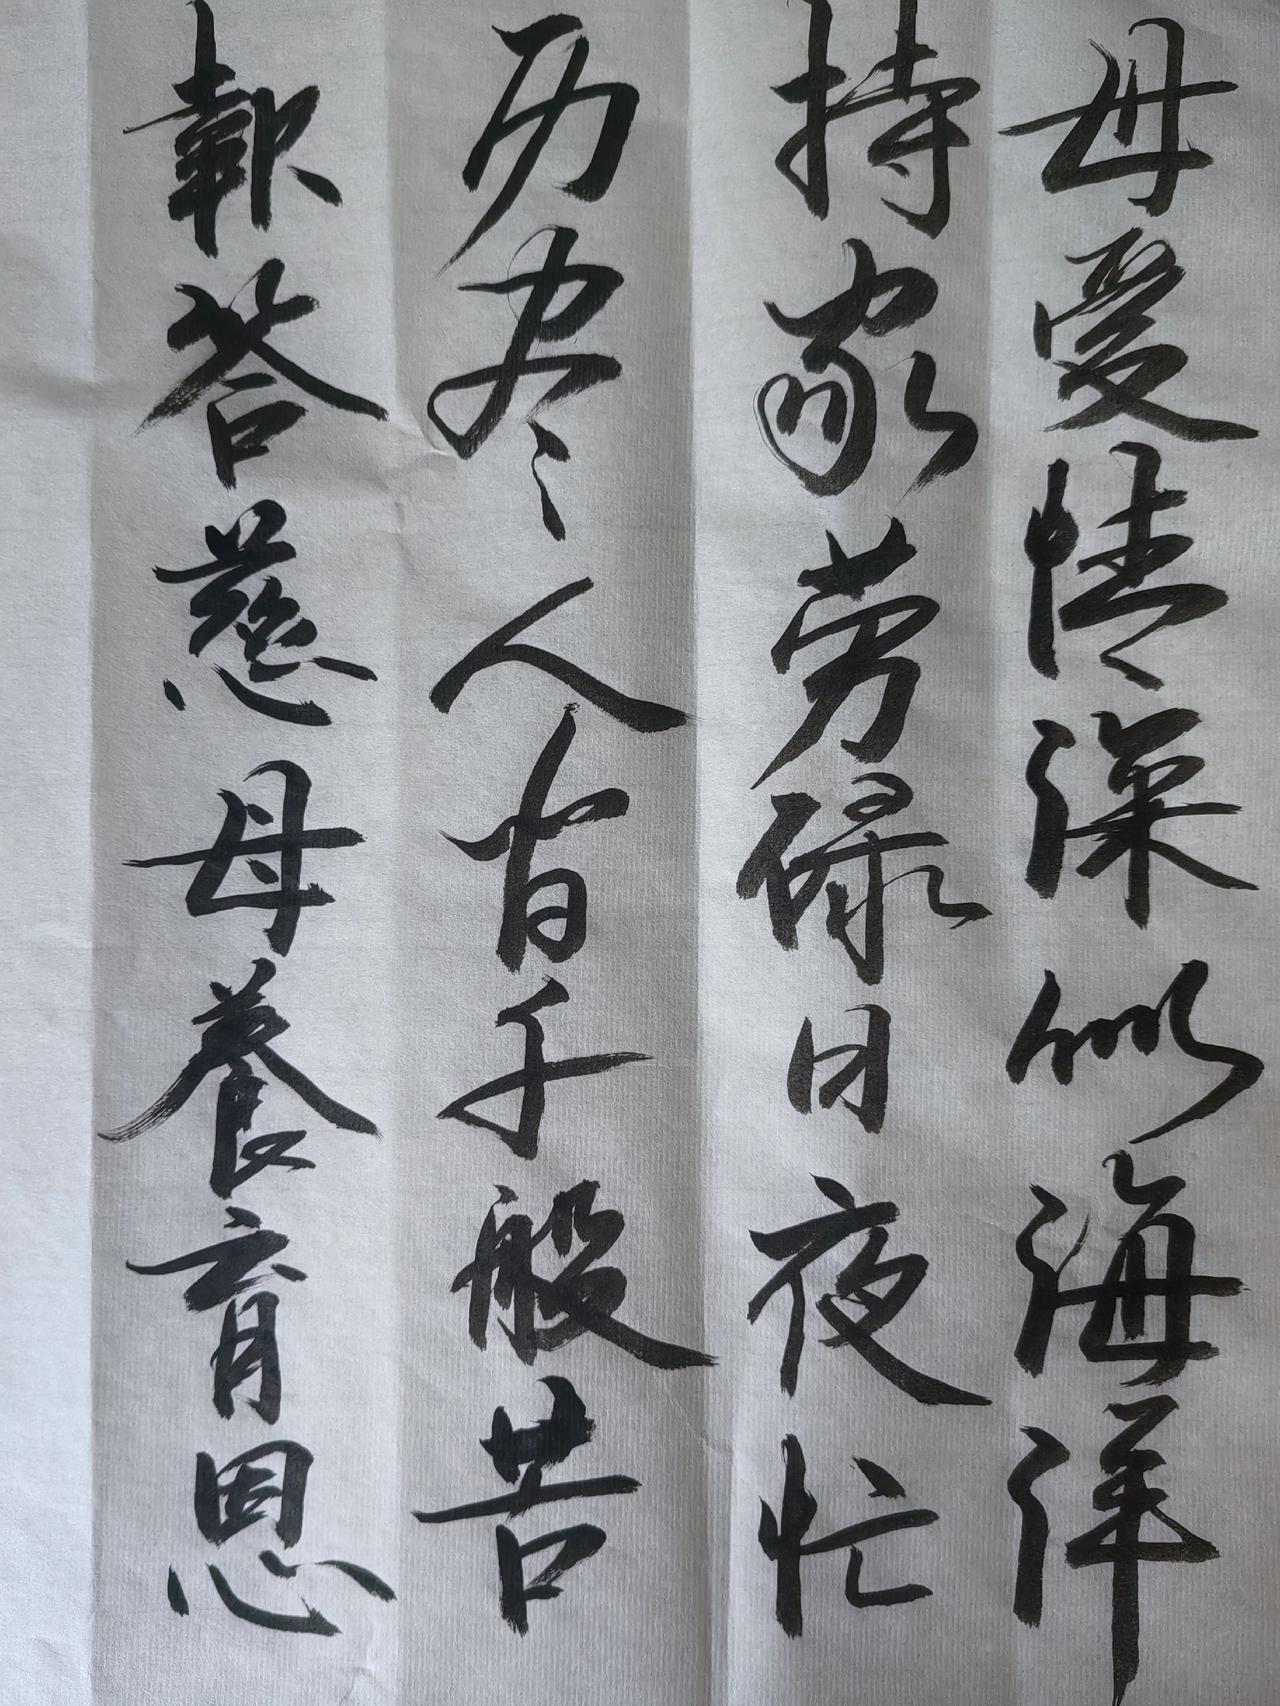 母爱情深似海洋
持家劳碌日夜忙
历尽人间千般苦
報答慈母養育恩